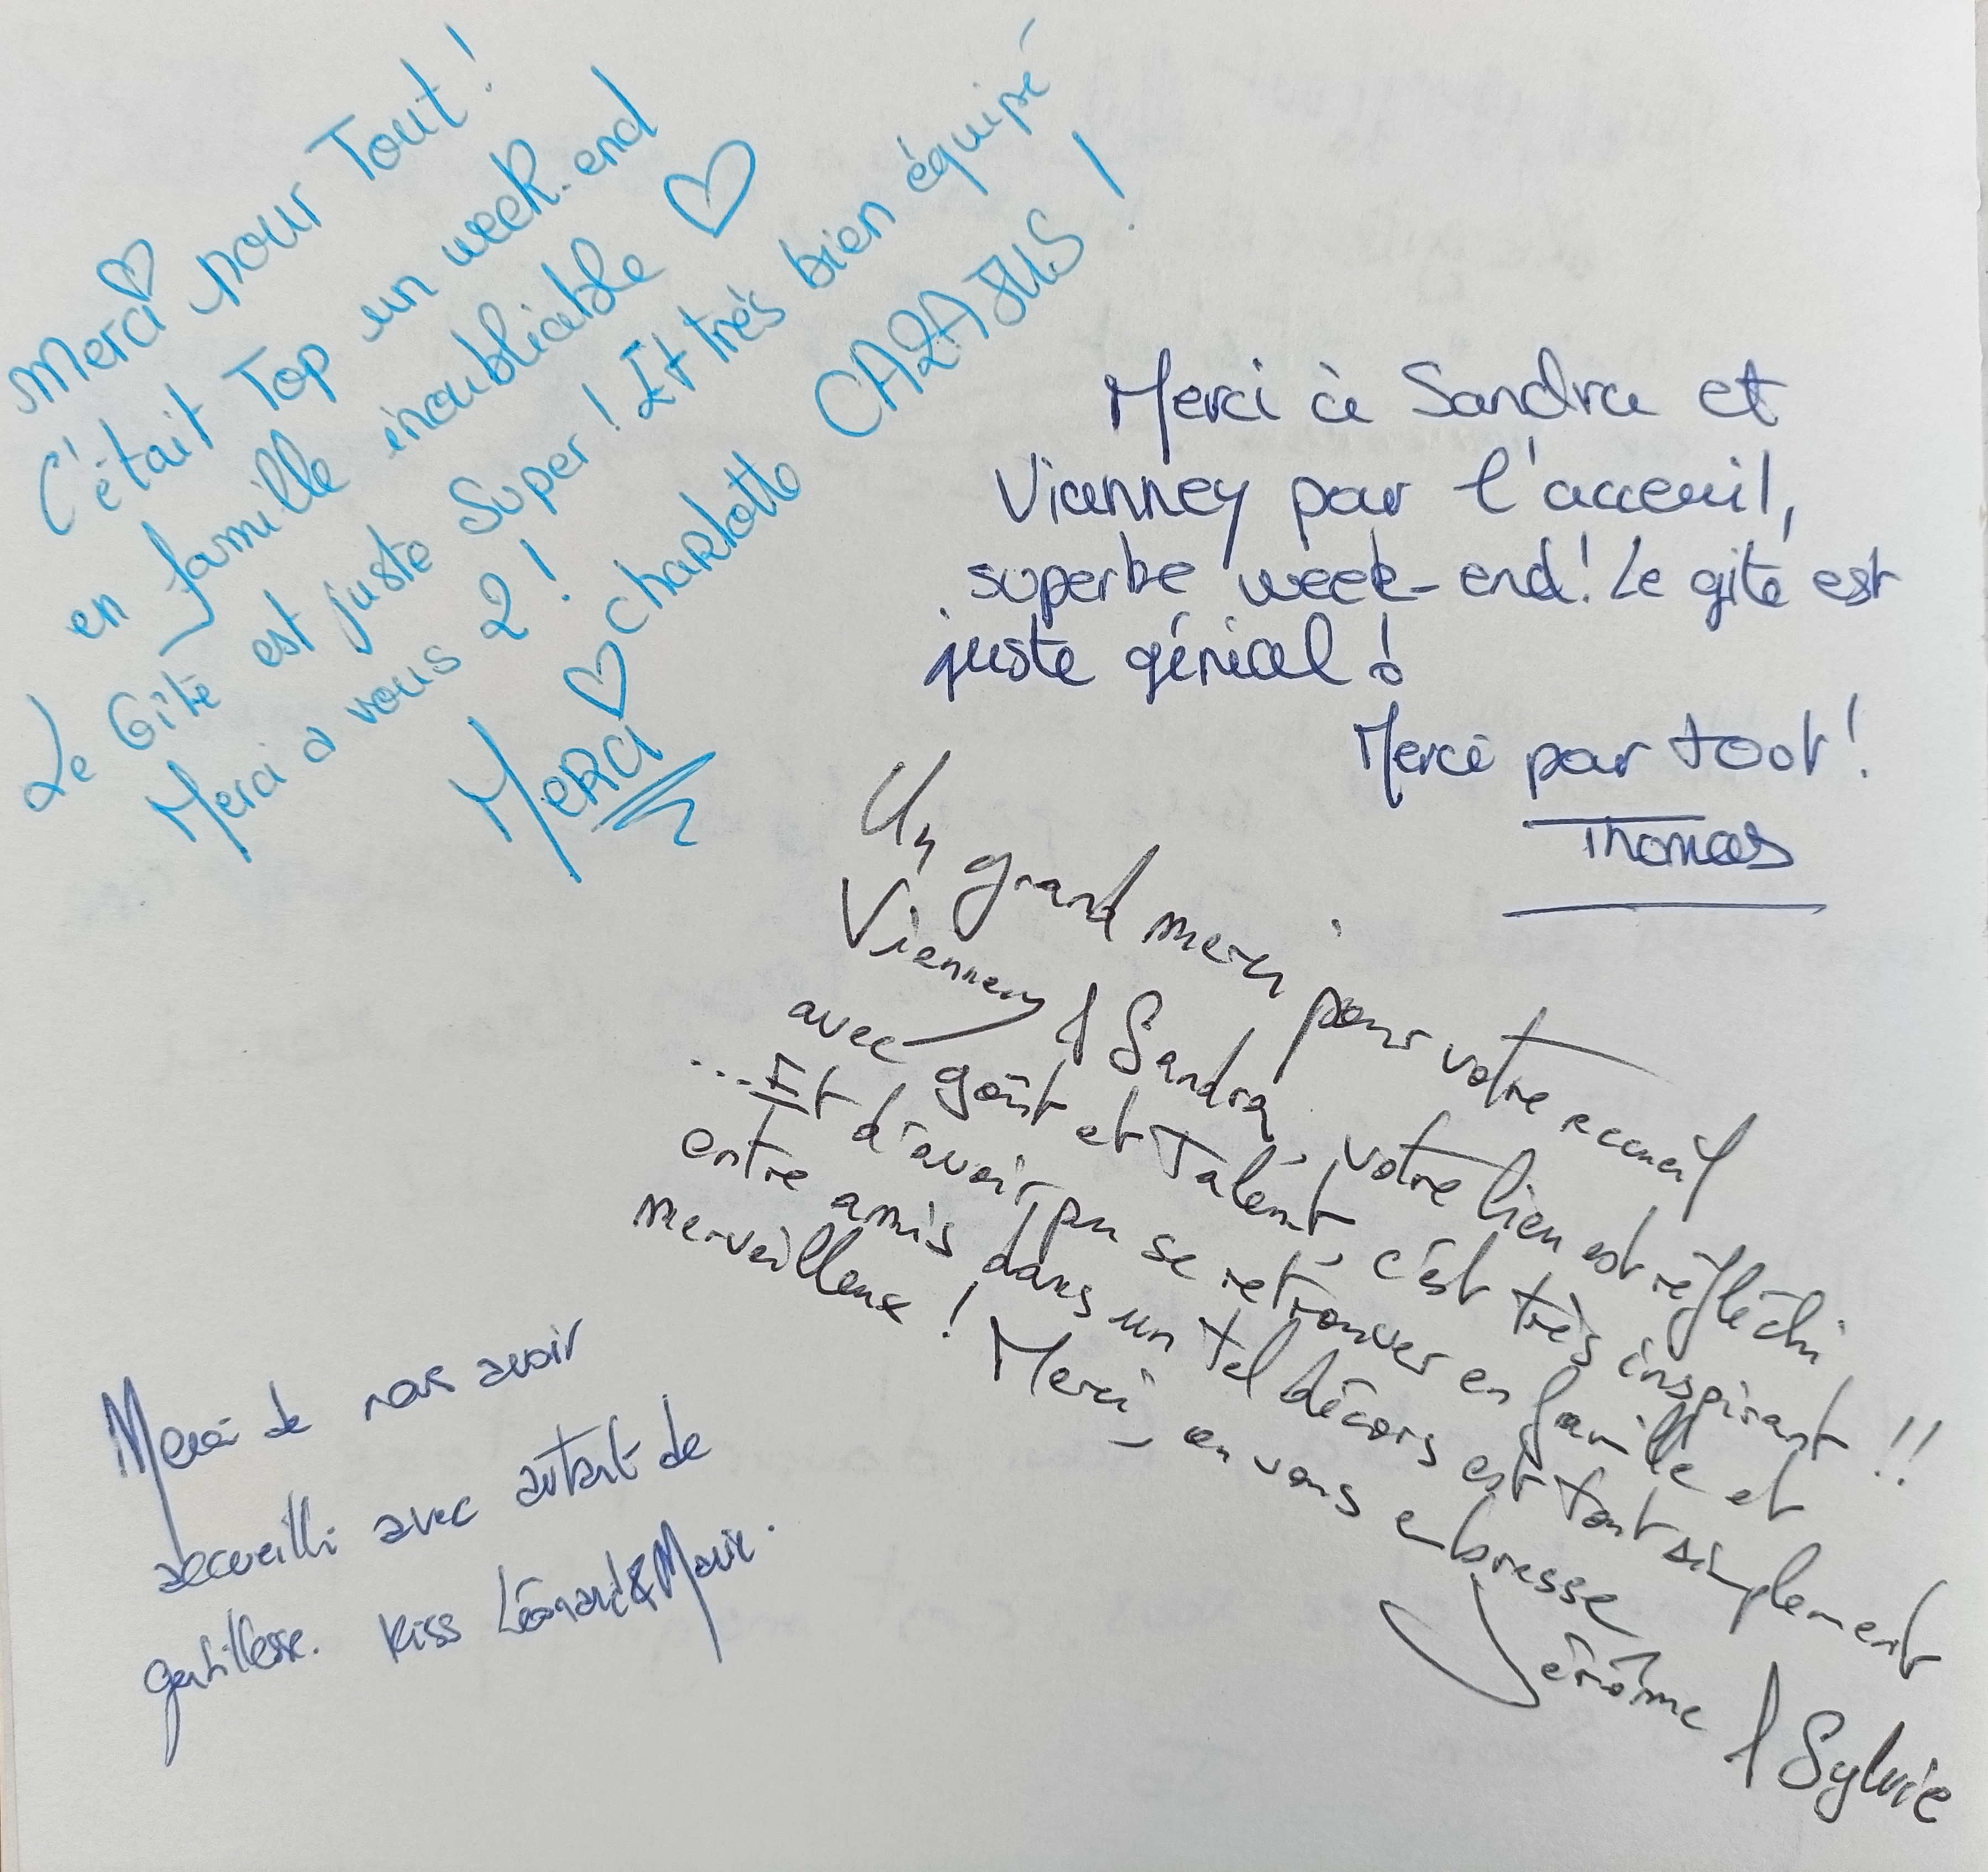 Merci pour Tout !
C'était Top un week-end
en famille inoubliable ♡
Le Gîte est juste Super ! Et très bien équipé
Merci a vous 2 !
♡ Charlotte CAZAJUS !
MERCI
Merci à Sandra et
Vianney pour l'acceuil,
superbe week-end ! Le gite est
juste génial !
Merci pour tout !
Thomas
Un grand merci pour votre accueil
Vianney & Sandra, votre lieu est réfléchi
avec goût et Talent, c'est très inspirant !!
... Et d'avoir pu se retrouver en famille et
entre amis dans un tel décors est tout simplement
merveilleux ! Merci, on vous embrasse
Jérôme & Sylvie
Merci de nous avoir
accueilli avec autant de
gentillesse. Kiss Léonard & Marie.